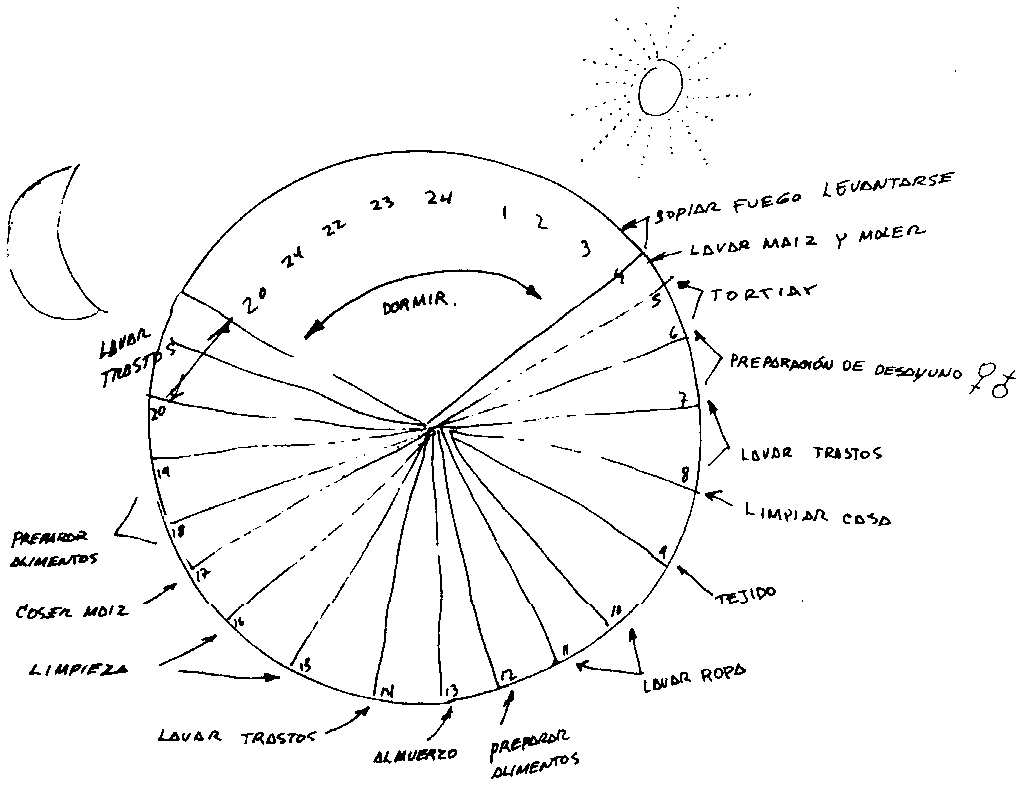 24
23
22
24
20
1
2
3
4
5
6
7
8
9
10
11
12
13
14
15
16
17
18
19
20
DORMIR.
SOPLAR FUEGO LEVANTARSE
LAVAR MAIZ Y MOLER
TORTIAR
PREPARACIÓN DE DESAYUNO ♀♂
LAVAR TRASTOS
LIMPIAR CASA
TEJIDO
LAVAR ROPA
PREPARAR
ALIMENTOS
ALMUERZO
LAVAR TRASTOS
LIMPIEZA
COSER MAIZ
PREPARAR
ALIMENTOS
LAVAR
TRASTOS